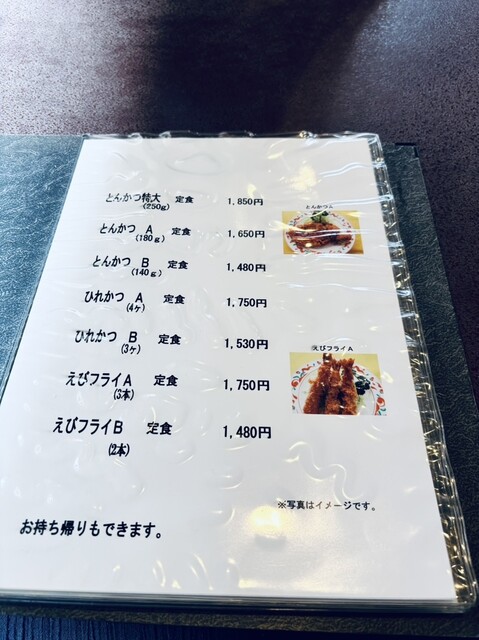 とんかつ特大 定食 1,850円
(250g)
とんかつA
とんかつ A 定食 1,650円
(180g)
とんかつ B 定食 1,480円
(140g)
ひれかつ A 定食 1,750円
(4ヶ)
ひれかつ B 定食 1,530円
(3ヶ)
えびフライA
えびフライA 定食 1,750円
(3本)
えびフライB 定食 1,480円
(2本)
※写真はイメージです。
お持ち帰りもできます。